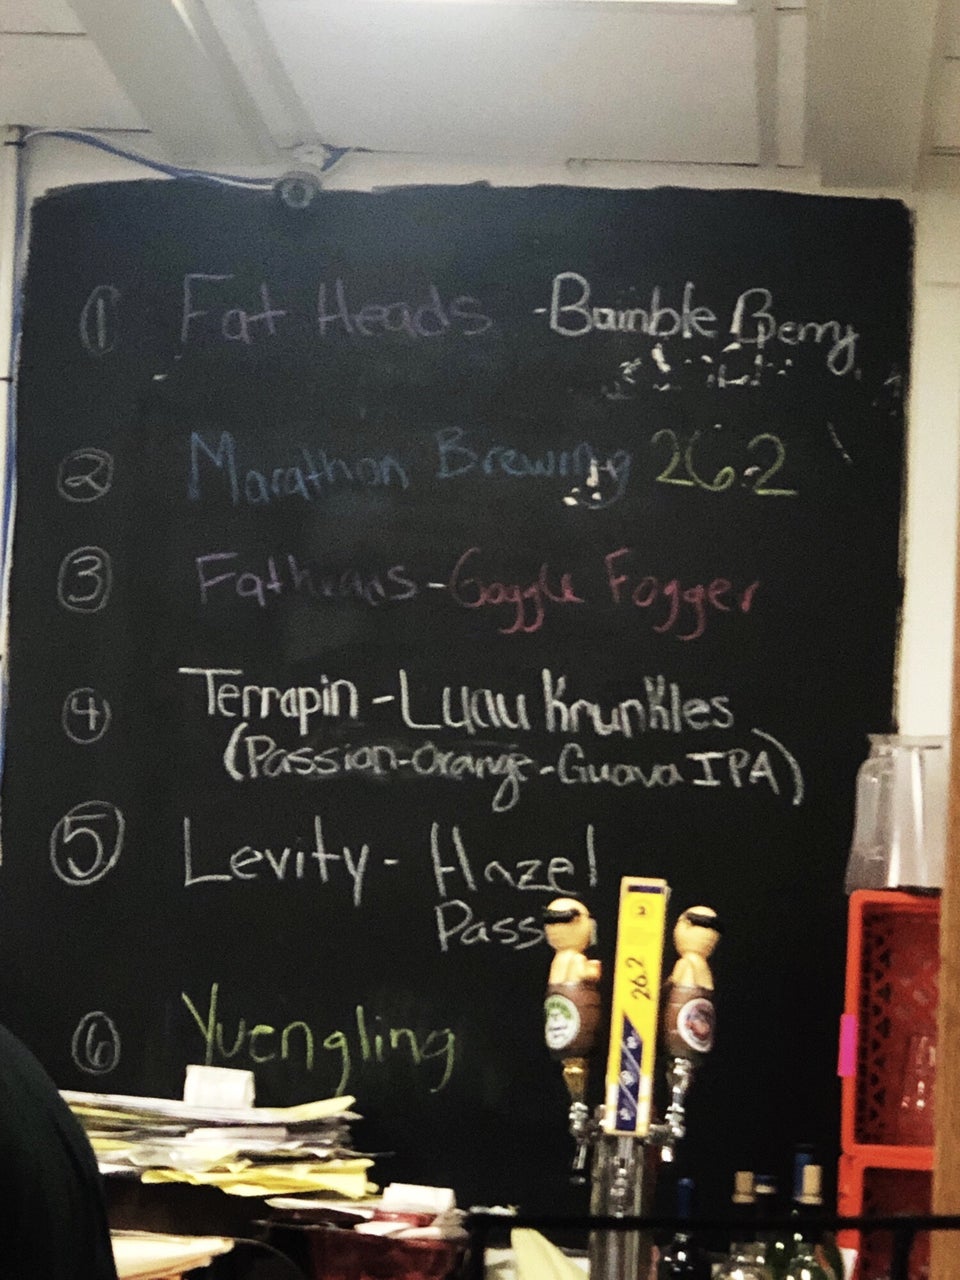 ① Fat Heads - Bumble Berry
② Marathon Brewing 26.2
③ Fatheads - Goggle Fogger
④ Terrapin - Luau Krunkles
(Passion-Orange-Guava IPA)
⑤ Levity - Hazel
Pass
⑥ Yuengling
26.2